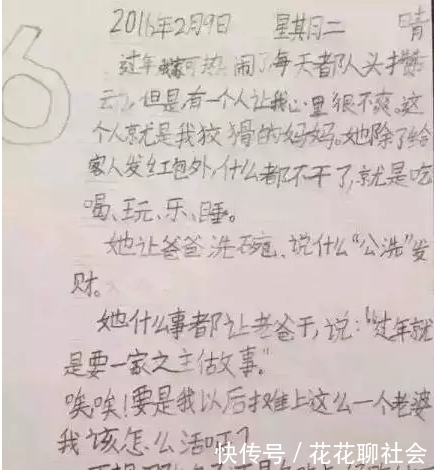 6
2016年2月9日 星期二 晴
过年家可热闹了每天都人头攒
云力,但是有一个人让我心里很不爽。这
个人就是我狡猾的妈妈。她除了给
客人发红包外,什么都不干了,就是吃
喝、玩、乐、睡。
她让爸爸洗碗、说什么“公洗”发
财。
她什么事都让老爸干,说:“过年就
是要一家之主估故事。”
唉唉!要是我以后摊上这么一个老婆
我该怎么活呀?
快传号/花花聊社会